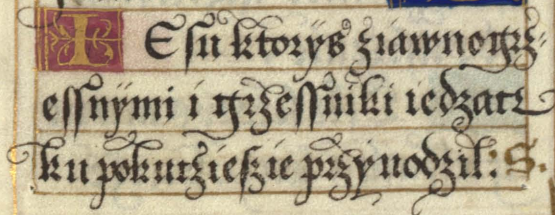 IEsu ktorys ziawnogrz-
essnymi i grzessniki iedzacz
ku pokucziesz ie przywodzil: S.